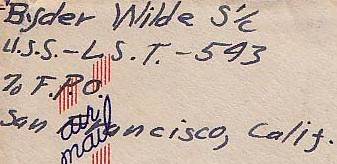 Byder Wilde S⅟c
U.S.S.-L.S.T.-593
℅ F.P.O.
San Francisco, Calif.
air
mail